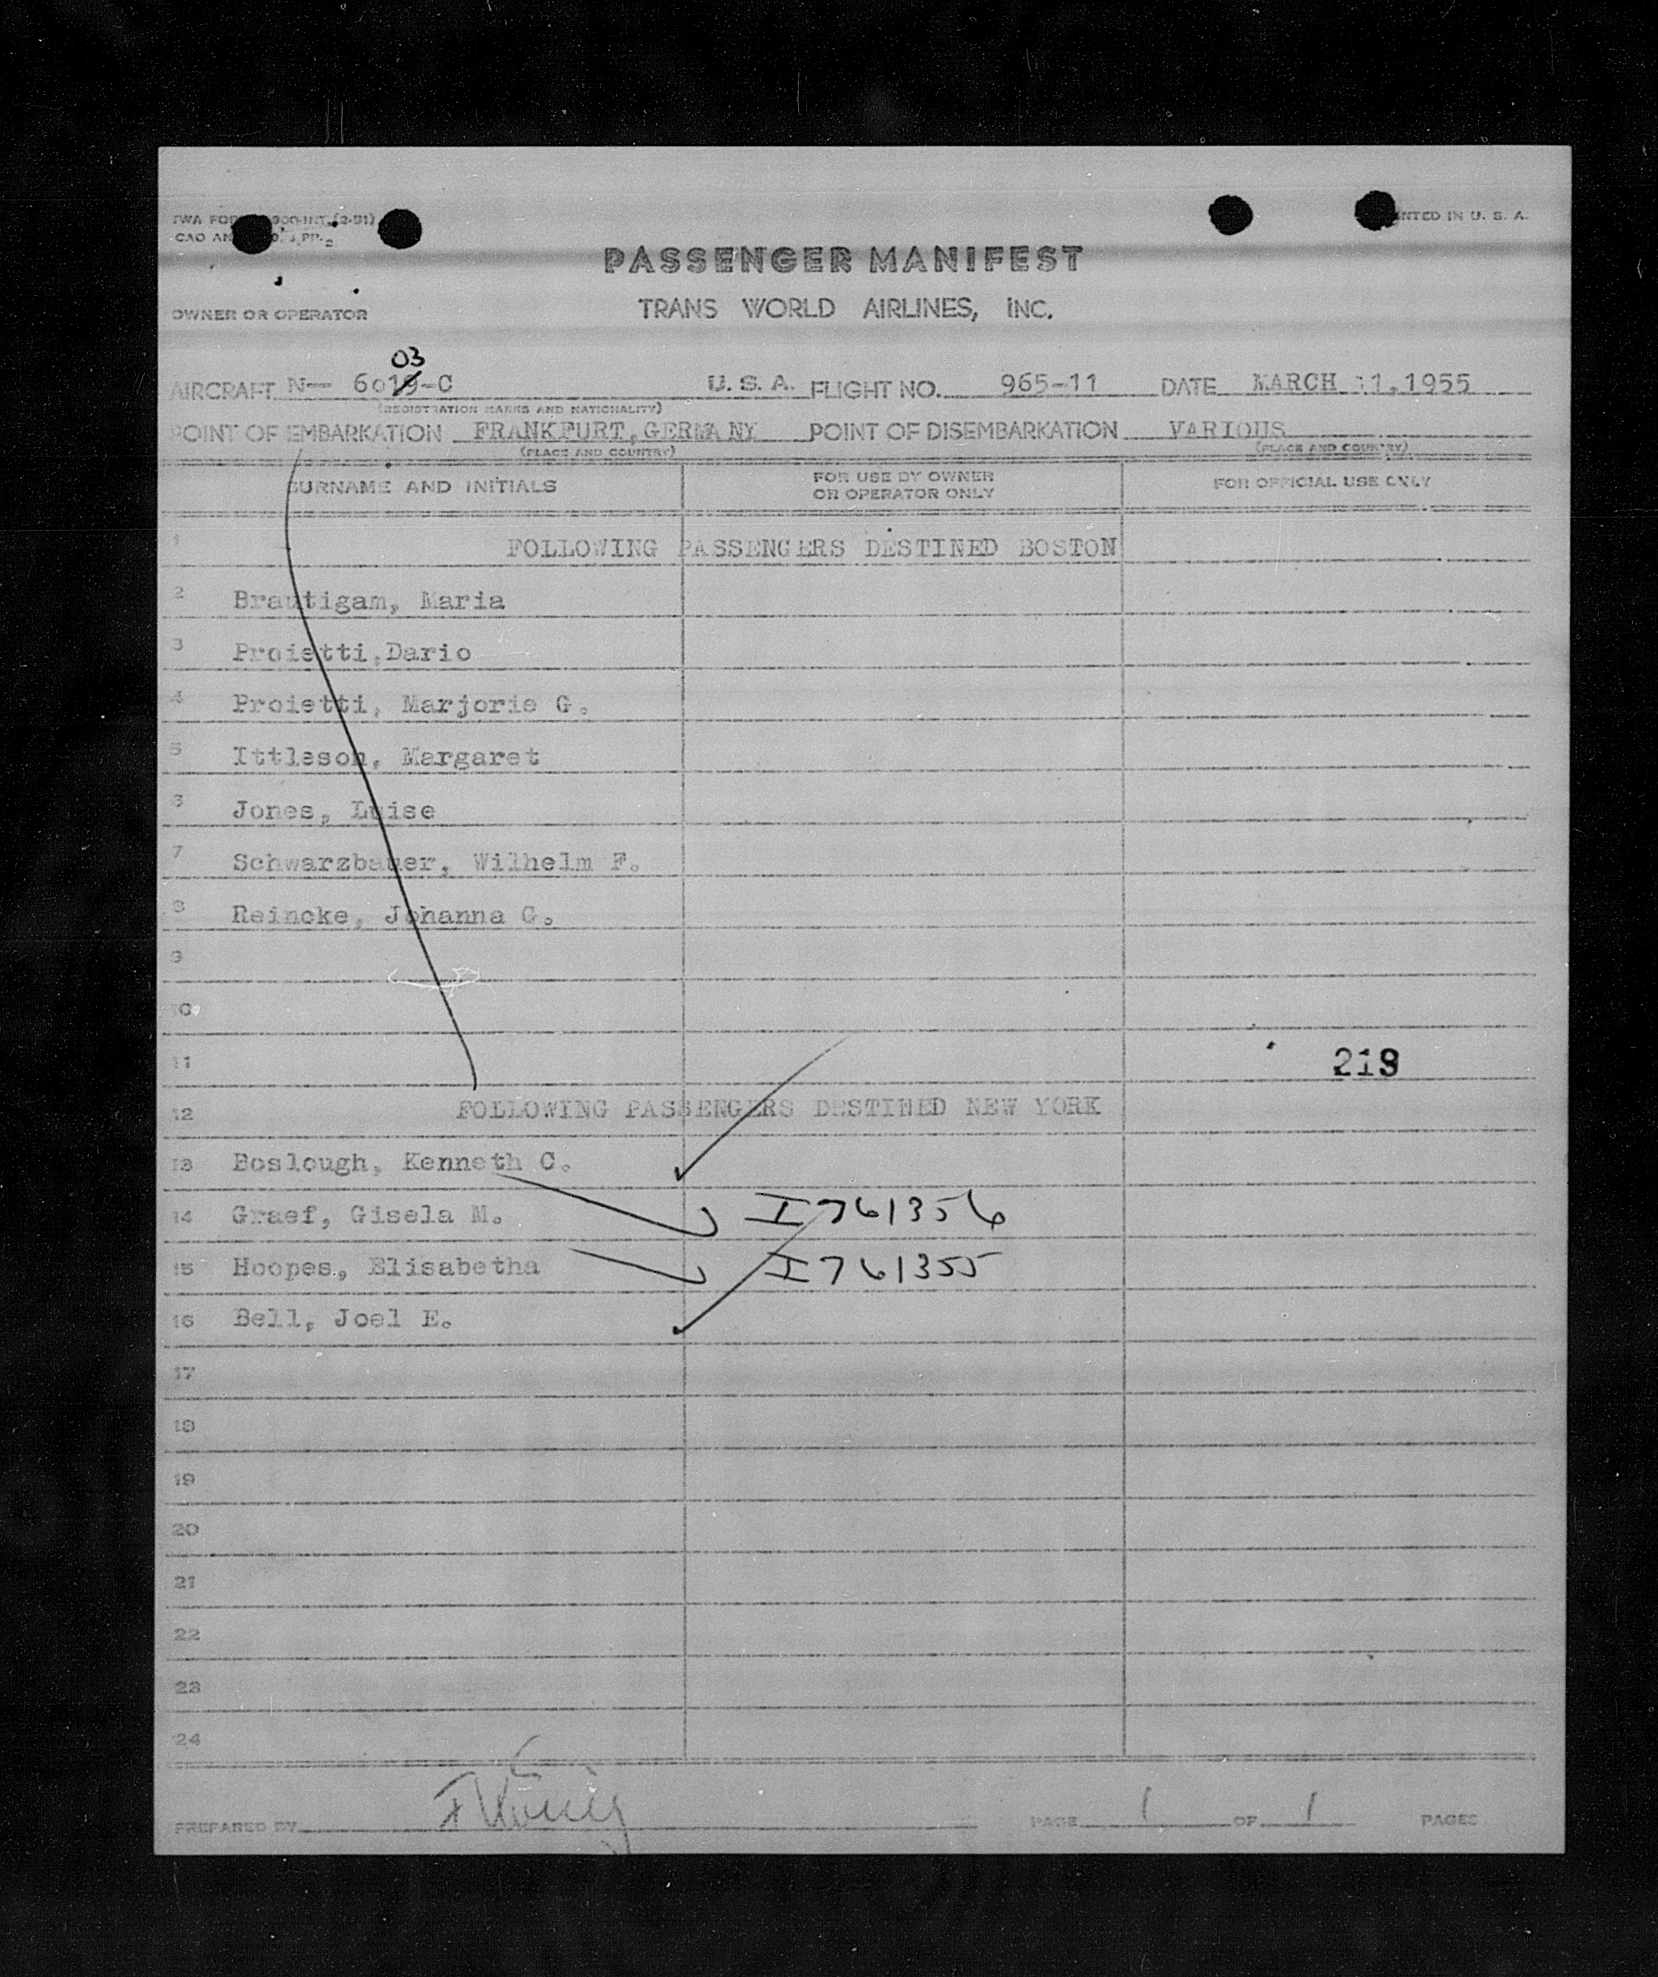 TWA FOR 300-INT. (2-51)
PRINTED IN U. S. A.
PASSENGER MANIFEST
OWNER OR OPERATOR
TRANS WORLD AIRLINES, INC.
03
AIRCRAFT N— 6019-C U. S. A. FLIGHT NO. 965-11 DATE MARCH 11,1955
(REGISTRATION MARKS AND NATIONALITY)
POINT OF EMBARKATION FRANKFURT,GERMANY POINT OF DISEMBARKATION VARIOUS
(PLACE AND COUNTRY) (PLACE AND COUNTRY)
SURNAME AND INITIALS FOR USE BY OWNER OR OPERATOR ONLY FOR OFFICIAL USE ONLY
1 FOLLOWING PASSENGERS DESTINED BOSTON
2 Brautigam, Maria
3 Proietti,Dario
4 Proietti, Marjorie G.
5 Ittleson, Margaret
6 Jones, Luise
7 Schwarzbauer, Wilhelm F.
8 Reincke, Johanna G.
9
10
11 219
12 FOLLOWING PASSENGERS DESTINED NEW YORK
13 Boslough, Kenneth C.
14 Graef, Gisela M. I761356
15 Hoopes, Elisabetha I761355
16 Bell, Joel E.
17
18
19
20
21
22
23
24
PREPARED BY PAGE 1 OF 1 PAGES